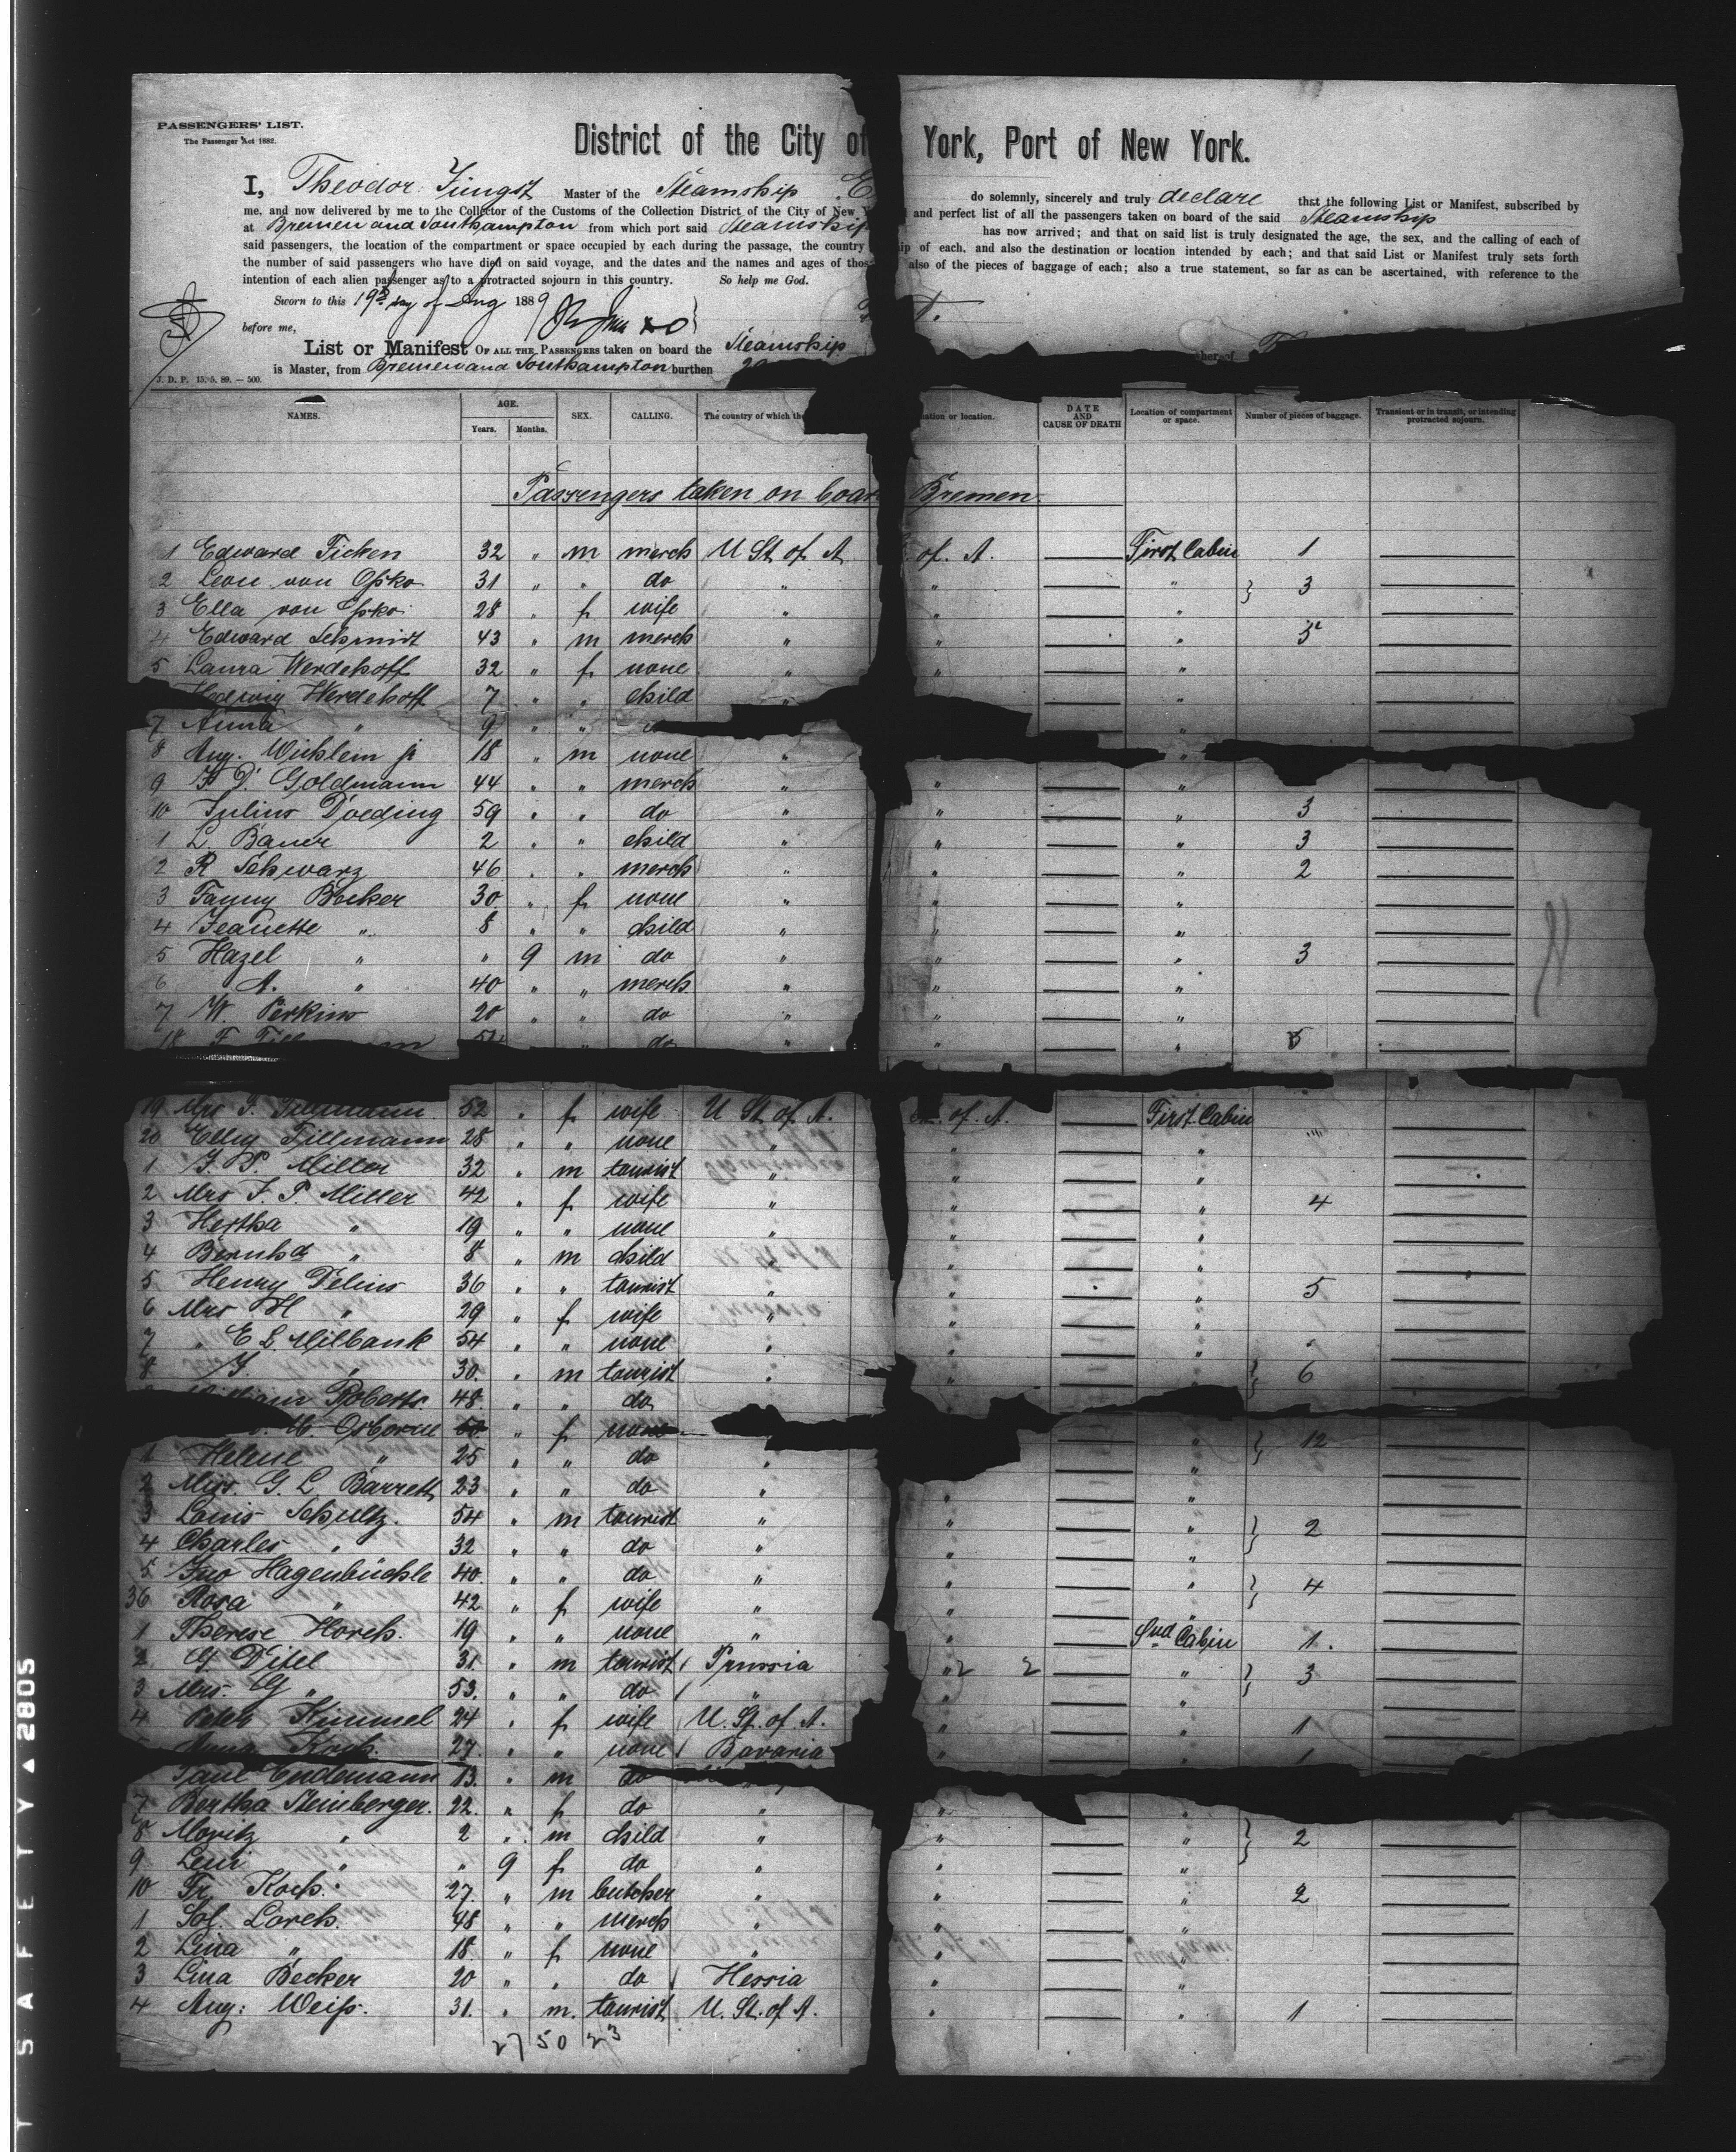 PASSENGERS' LIST.
The Passenger Act 1882.
District of the City of York, Port of New York.
I, Theodor Jüngst Master of the Steamship E do solemnly, sincerely and truly declare that the following List or Manifest, subscribed by
me, and now delivered by me to the Collector of the Customs of the Collection District of the City of New Y and perfect list of all the passengers taken on board of the said Steamship
at Bremen and Southampton from which port said Steamship has now arrived; and that on said list is truly designated the age, the sex, and the calling of each of
said passengers, the location of the compartment or space occupied by each during the passage, the country ip of each, and also the destination or location intended by each; and that said List or Manifest truly sets forth
the number of said passengers who have died on said voyage, and the dates and the names and ages of thos also of the pieces of baggage of each; also a true statement, so far as can be ascertained, with reference to the
intention of each alien passenger as to a protracted sojourn in this country. So help me God.
Sworn to this 19th day of Aug 1889
before me,
List or Manifest OF ALL THE PASSENGERS taken on board the Steamship
is Master, from Bremen and Southampton burthen
J. D. P. 15. 5. 89. — 500.
NAMES. AGE. Years. Months. SEX. CALLING. The country of which the ation or location. DATE AND CAUSE OF DEATH Location of compartment or space. Number of pieces of baggage. Transient or in transit, or intending protracted sojourn.
Passengers taken on boar Bremen
1 Edward Ficken 32 " m merch U St. of A of. A. First Cabin 1
2 Leon von Ofsko 31 " " do " " " } 3
3 Ella von Ofsko 28 " f wife " " "
4 Edward Schmidt 43 " m merch " " " 3
5 Laura Werdehoff 32 " f none " " "
Hedwig Werdehoff 7 " " child " "
7 Anna " 9 " " " "
8 Aug. Wichlem jr 18 " m none " "
9 D. Goldmann 44 " " merch " " "
10 Julius Doeding 59 " " do " " " 3
1 L. Bauer 2 " " child " " " 3
2 R Schwarz 46 " " merch " " " 2
3 Fanny Becker 30 " f none " " "
4 Jeanette " 8 " " child " " "
5 Hazel " " 9 m do " " " 3
6 A. " 40 " " merch " " "
7 W. Perkins 20 " " do " " "
18 F. " " do " " 5
19 Mrs F. Tillmann 52 " f wife U St. of A. of. A. First Cabin "
20 Elly Tillmann 28 " " none " " "
1 J. P. Miller 32 " m tourist " " "
2 Mrs J. P. Miller 42 " f wife " " " 4
3 Hertha " 19 " " none " " "
4 Bernhd " 8 " m child " " "
5 Henry Delius 36 " " tourist " " " 5
6 Mrs H " 29 " f wife " " "
7 " E L Milbank 54 " " none " " "
8 J. " 30. " m tourist " " " } 6
William Roberts. 48 " " do
Osborne " f none " } 12
1 Helene " 25 " " do " "
2 Miss. G. L. Barrett 23 " " do " " "
3 Louis Schultz. 54 " m tourist " " " } 2
4 Charles " 32 " " do " " "
5 Jno Hagenbüchle 40. " " do " " " } 4
36 Rosa " 42 " f wife " " "
1 Therese Horch. 19 " " none " " Snd Cabin 1.
2 G. 31. " m tourist Prussia " 2 2 " } 3
3 Mrs. G " 53. " " do " " "
4 Peter Kimmel 24 " f wife U. St. of A. " " 1
27. " " none Bavaria " 1
Paul Endemann 13. " m do
7 Bertha Steinberger. 22. " f do " " "
8 Moritz " 2 " m child " " " } 2
9 Leni " " 9 f do " " "
10 Fr. Koch. 27. " m butcher " " " 2
1 Sol. Lorch. 48 " " merch " " "
2 Lina " 18 " f none " " "
3 Lina Becker 20 " " do Hessia " "
4 Aug: Weiss. 31. " m. tourist U. St. of A. " " 1
27 50 23
T SAFETY ▲ 2805